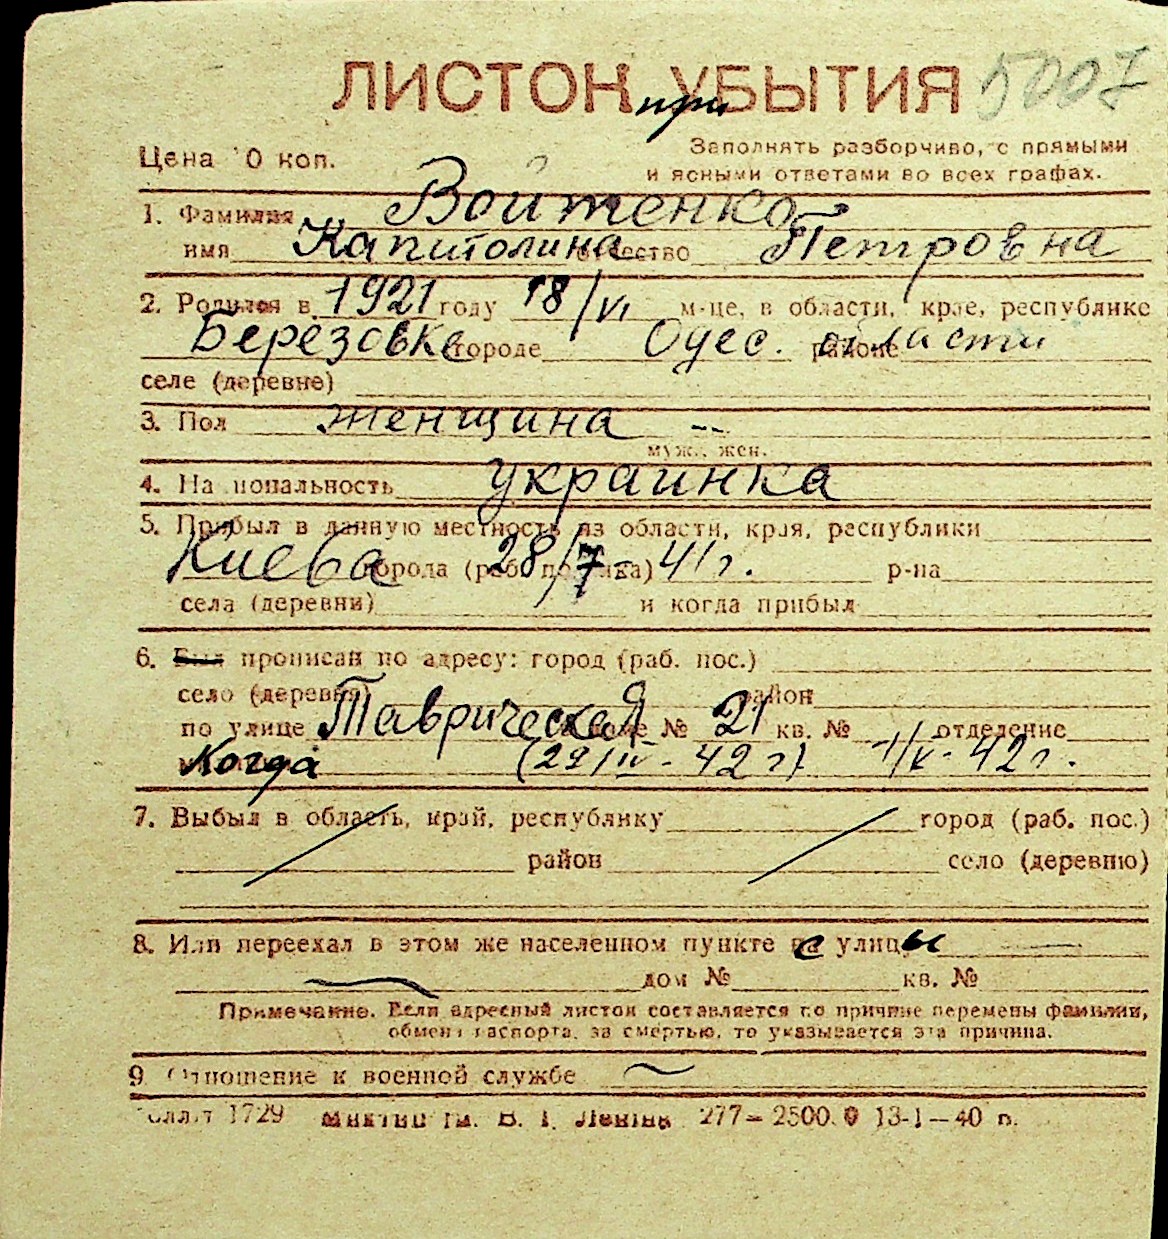 ЛИСТОК УБЫТИЯ 5007
при
Цена 10 коп.
Заполнять разборчиво, с прямыми
и ясными ответами во всех графах.
1. Фамилия Войтенко
имя Капитолина отчество Петровна
2. Родился в 1921 году 18/VI м-це, в области, крае, республике
Березовке городе Одес. области районе
селе (деревне)
3. Пол женщина
муж., жен.
4. Национальность украинка
5. Прибыл в данную местность из области, края, республики
Киева города (раб. поселка) 28/7-41 г. р-на
села (деревни) и когда прибыл
6. Был прописан по адресу: город (раб. пос.)
село (деревня) район
по улице Таврическая доме № 21 кв. № отделение
Когда (29/IV-42 г) 1/V-42 г.
7. Выбыл в область, край, республику город (раб. пос.)
район село (деревню)
8. Или переехал в этом же населенном пункте с улицы
дом № кв. №
Примечание. Если адресный листок составляется по причине перемены фамилии,
обмена паспорта, за смертью, то указывается эта причина.
9. Отношение к военной службе
1729 В. І. Леніна 277–2500.0 13-1–40 р.